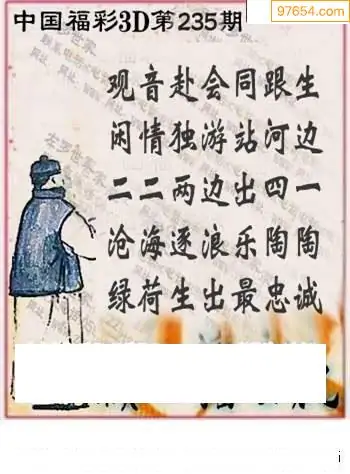 97654.com
中国福彩3D第235期
观音赴会同跟生
闲情独游站河边
二二两边出四一
沧海逐浪乐陶陶
绿荷生出最忠诚